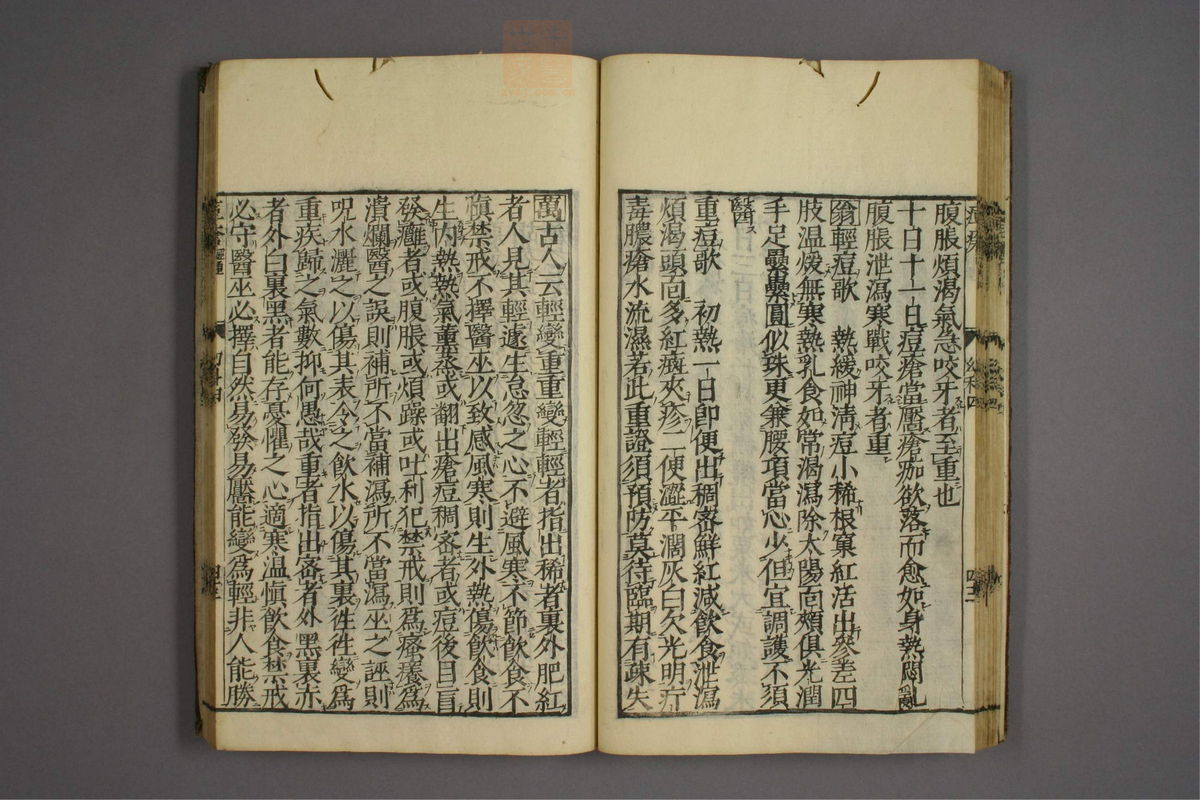 腹脹煩渴氣急咬牙者至重也
十日十一日痘瘡當靨瘡痂欲落而愈如身熱悶亂
腹脹泄瀉寒戰咬牙者重
翁輕痘歌　熱緩神清痘小稀根窠紅活出參差四
肢溫煖無寒熱乳食如常渴瀉除太陽面頰俱光潤
手足纍纍圓似珠更兼腰項當心少但宜調護不須
醫
重痘歌　初熱一日即便出稠密鮮紅減飲食泄瀉
煩渴頭面多紅斑夾疹二便澀平濶灰白欠光明疔
毒膿瘡水流濕若此重證須預防莫待臨期有疎失
萬古人云輕變重重變輕輕者指出稀者裏外肥紅
者人見其輕遂生怠忽之心不避風寒不節飲食不
愼禁戒不擇醫巫以致感風寒則生外熱傷飲食則
生內熱熱氣薫蒸或翻出瘡痘稠密者或痘後目盲
發癰者或腹脹或煩躁或吐利犯禁戒則爲瘙癢爲
潰爛醫之誤則補所不當補瀉所不當瀉巫之誣則
咒水灑之以傷其表令之飲水以傷其裏徃徃變爲
重疾歸之氣數抑何愚哉重者指出密者外黑裏赤
者外白裏黑者能存憂懼之心適寒温愼飲食禁戒
必守醫巫必擇自然易發易靨能變爲輕非人能勝